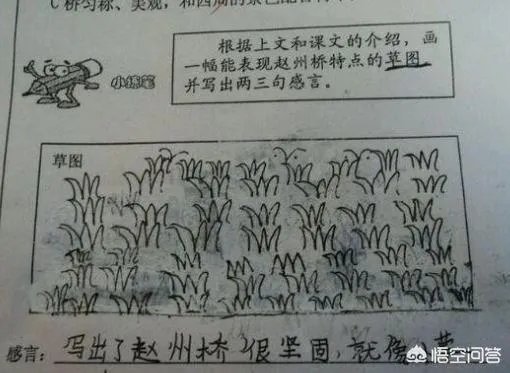 C桥匀称、美观，和四周的景色配合
根据上文和课文的介绍，画
一幅能表现赵州桥特点的草图
并写出两三句感言。
小练笔
草图
感言：写出了赵州桥很坚固，就像小草
悟空问答